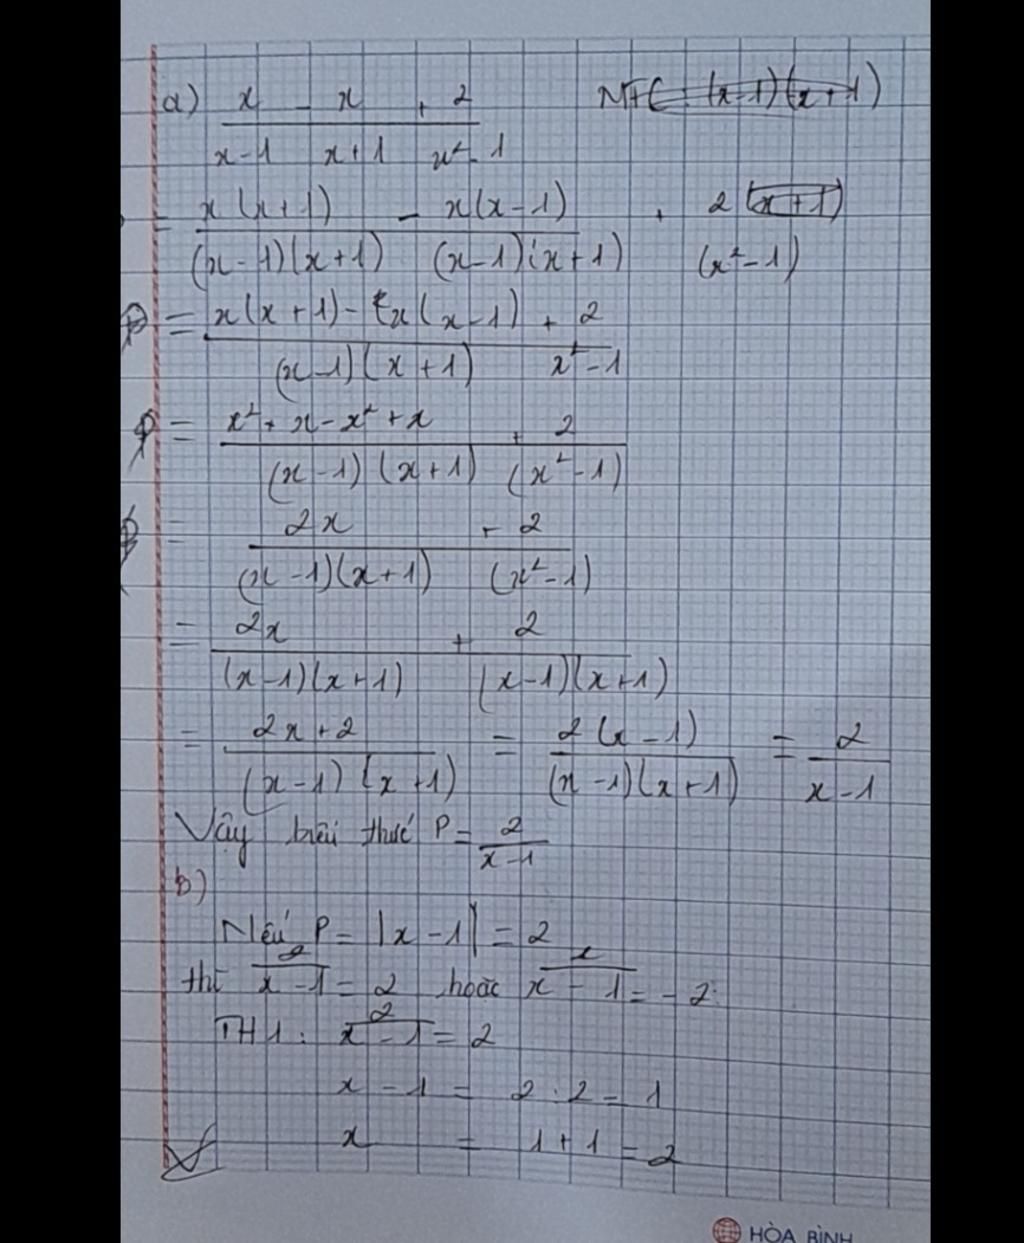 a) x/(x-1) - x/(x+1) + 2/(x²-1) MTC: (x-1)(x+1)
= x(x+1)/((x-1)(x+1)) - x(x-1)/((x-1)(x+1)) + 2(x+1)/(x²-1)
P = (x(x+1) - x(x-1))/((x-1)(x+1)) + 2/(x²-1)
P = (x² + x - x² + x)/((x-1)(x+1)) + 2/(x²-1)
P = 2x/((x-1)(x+1)) + 2/(x²-1)
= 2x/((x-1)(x+1)) + 2/((x-1)(x+1))
= (2x+2)/((x-1)(x+1)) = 2(x-1)/((x-1)(x+1)) = 2/(x-1)
Vậy biểu thức P = 2/(x-1)
b)
Nếu P = |x-1| = 2
thì 2/(x-1) = 2 hoặc 2/(x-1) = -2
TH1: 2/(x-1) = 2
x - 1 = 2 : 2 = 1
x = 1 + 1 = 2
HÒA BÌNH